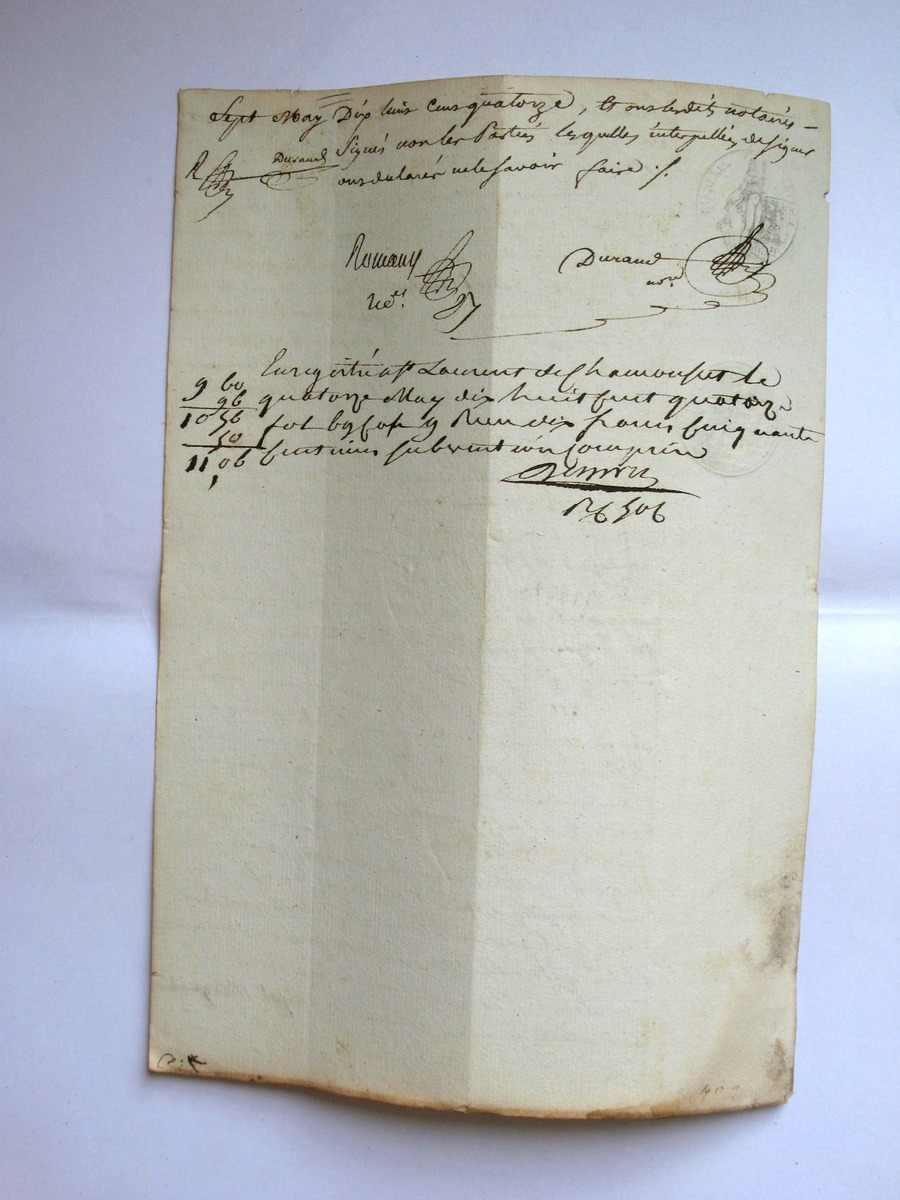 Sept May Dix huit Cens quatorze, Et ons lesdits notaires
signés non les Parties lesquelles interpellées de signer
ont declaré ne le savoir faire ./.
R Durand
Romany
no.re
Durand
no.re
Enregistré a St Laurent de Chamousset le
quatorze May dix huit Cent quatorze
fol 69 Cose 9 Reçu dix francs Cinquante
Centimes subvention Comprise
9 60
96
10 56
50
11 06